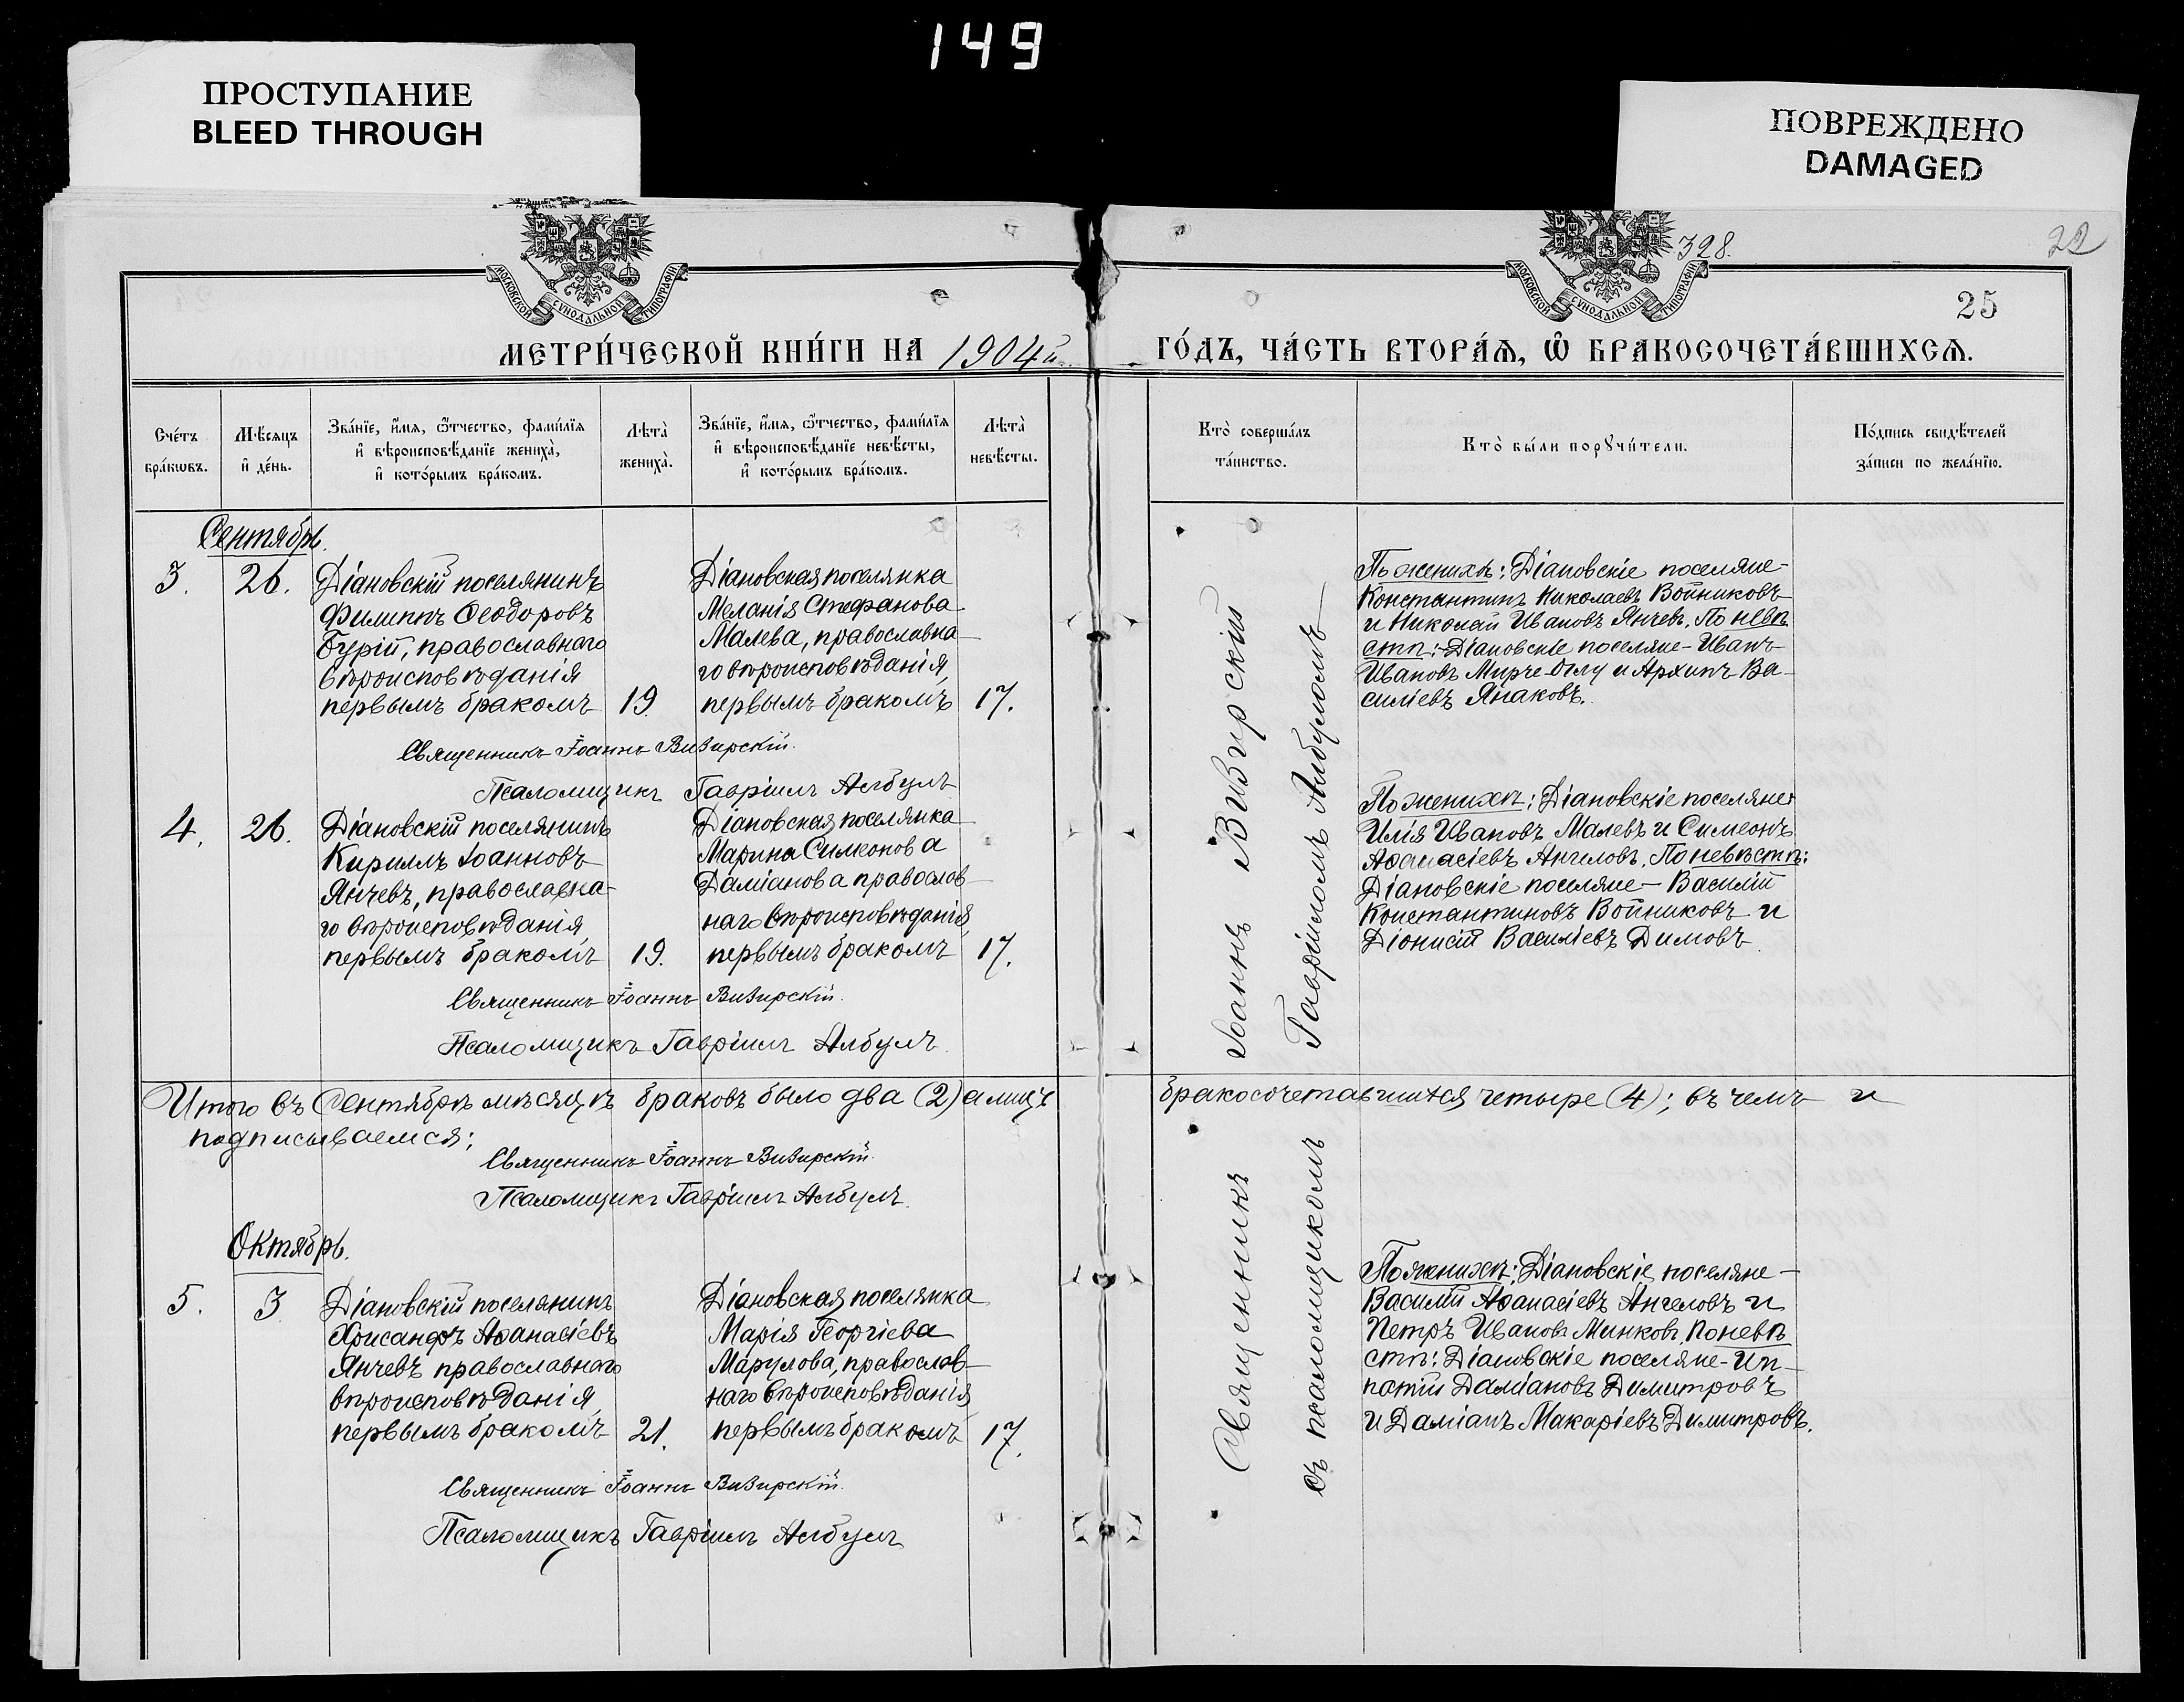 149
ПРОСТУПАНИЕ
BLEED THROUGH
ПОВРЕЖДЕНО
DAMAGED
328.
22
25
МОСКОВСКОЙ СѴНОДАЛЬНОЙ ТИПОГРАФІИ
МОСКОВСКОЙ СѴНОДАЛЬНОЙ ТИПОГРАФІИ
МЕТРИ́ЧЕСКОЙ КНИ́ГИ НА 1904й
ГО́ДЪ, ЧА́СТЬ ВТОРА́Ѧ, Ѽ БРАКОСОЧЕТА́ВШИХСѦ.
Сче́тъ
бра́кѡвъ.
Мѣ́сѧцъ
и҆ де́нь.
Зва́нїе, и҆́мѧ, ѻ҆́тчество, фами́лїѧ
и҆ вѣроисповѣ́данїе жениха̀,
и҆ кото́рымъ бра́комъ.
Лѣ́та
жениха̀.
Зва́нїе, и҆́мѧ, ѻ҆́тчество, фами́лїѧ
и҆ вѣроисповѣ́данїе невѣ́сты,
и҆ кото́рымъ бра́комъ.
Лѣ́та
невѣ́сты.
Кто̀ соверша́лъ
та́инство.
Кто̀ бы́ли порꙋчи́тели.
По́дпись свидѣ́телей
за́писи по жела́нїю.
Сентябрь.
3.
26.
Діановскій поселянинъ
Филиппъ Ѳеодоровъ
Бурій, православнаго
вѣроисповѣданія
первымъ бракомъ
19.
Діановская поселянка
Меланія Стефанова
Малева, православна-
го вѣроисповѣданія
первымъ бракомъ
17.
По женихѣ: Діановскіе поселяне-
Константинъ Николаевъ Войниковъ
и Николай Ивановъ Янчевъ. По невѣ
стѣ: Діановскіе поселяне - Иванъ
Ивановъ Мирче-Оглу и Архипъ Ва-
силіевъ Янаковъ.
Священникъ Іоаннъ Визирскій.
Псаломщикъ Гавріилъ Албулъ
4.
26.
Діановскій поселянинъ
Кириллъ Іоанновъ
Янчевъ, православна-
го вѣроисповѣданія
первымъ бракомъ
19.
Діановская поселянка
Марина Симеонова
Даміанова православ-
наго вѣроисповѣданія
первымъ бракомъ
17.
По женихѣ: Діановскіе поселяне
Илія Ивановъ Малевъ и Симеонъ
Аѳанасіевъ Ангеловъ. По невѣстѣ:
Діановскіе поселяне - Василій
Константиновъ Войниковъ и
Діонисій Василіевъ Димовъ.
Священникъ Іоаннъ Визирскій.
Псаломщикъ Гавріилъ Албулъ.
Итого въ Сентябрѣ мѣсяцѣ браковъ было два (2) а лицъ бракосочетавшихся четыре (4); въ чемъ и
подписываемся:
Священникъ Іоаннъ Визирскій.
Псаломщикъ Гавріилъ Албулъ.
Октябрь.
5.
3
Діановскій поселянинъ
Хрисанфъ Аѳанасіевъ
Янчевъ православнаго
вѣроисповѣданія
первымъ бракомъ
21.
Діановская поселянка
Марія Георгіева
Марулова, православ-
наго вѣроисповѣданія
первымъ бракомъ
17.
По женихѣ: Діановскіе поселяне -
Василій Аѳанасіевъ Ангеловъ и
Петръ Ивановъ Минковъ. По невѣ
стѣ: Діановскіе поселяне - Ип-
патій Даміановъ Димитровъ
и Даміанъ Макаріевъ Димитровъ.
Священникъ Іоаннъ Визирскій.
Псаломщикъ Гавріилъ Албулъ
Священникъ Іоаннъ Визирскій
съ псаломщикомъ Гавріиломъ Албуломъ